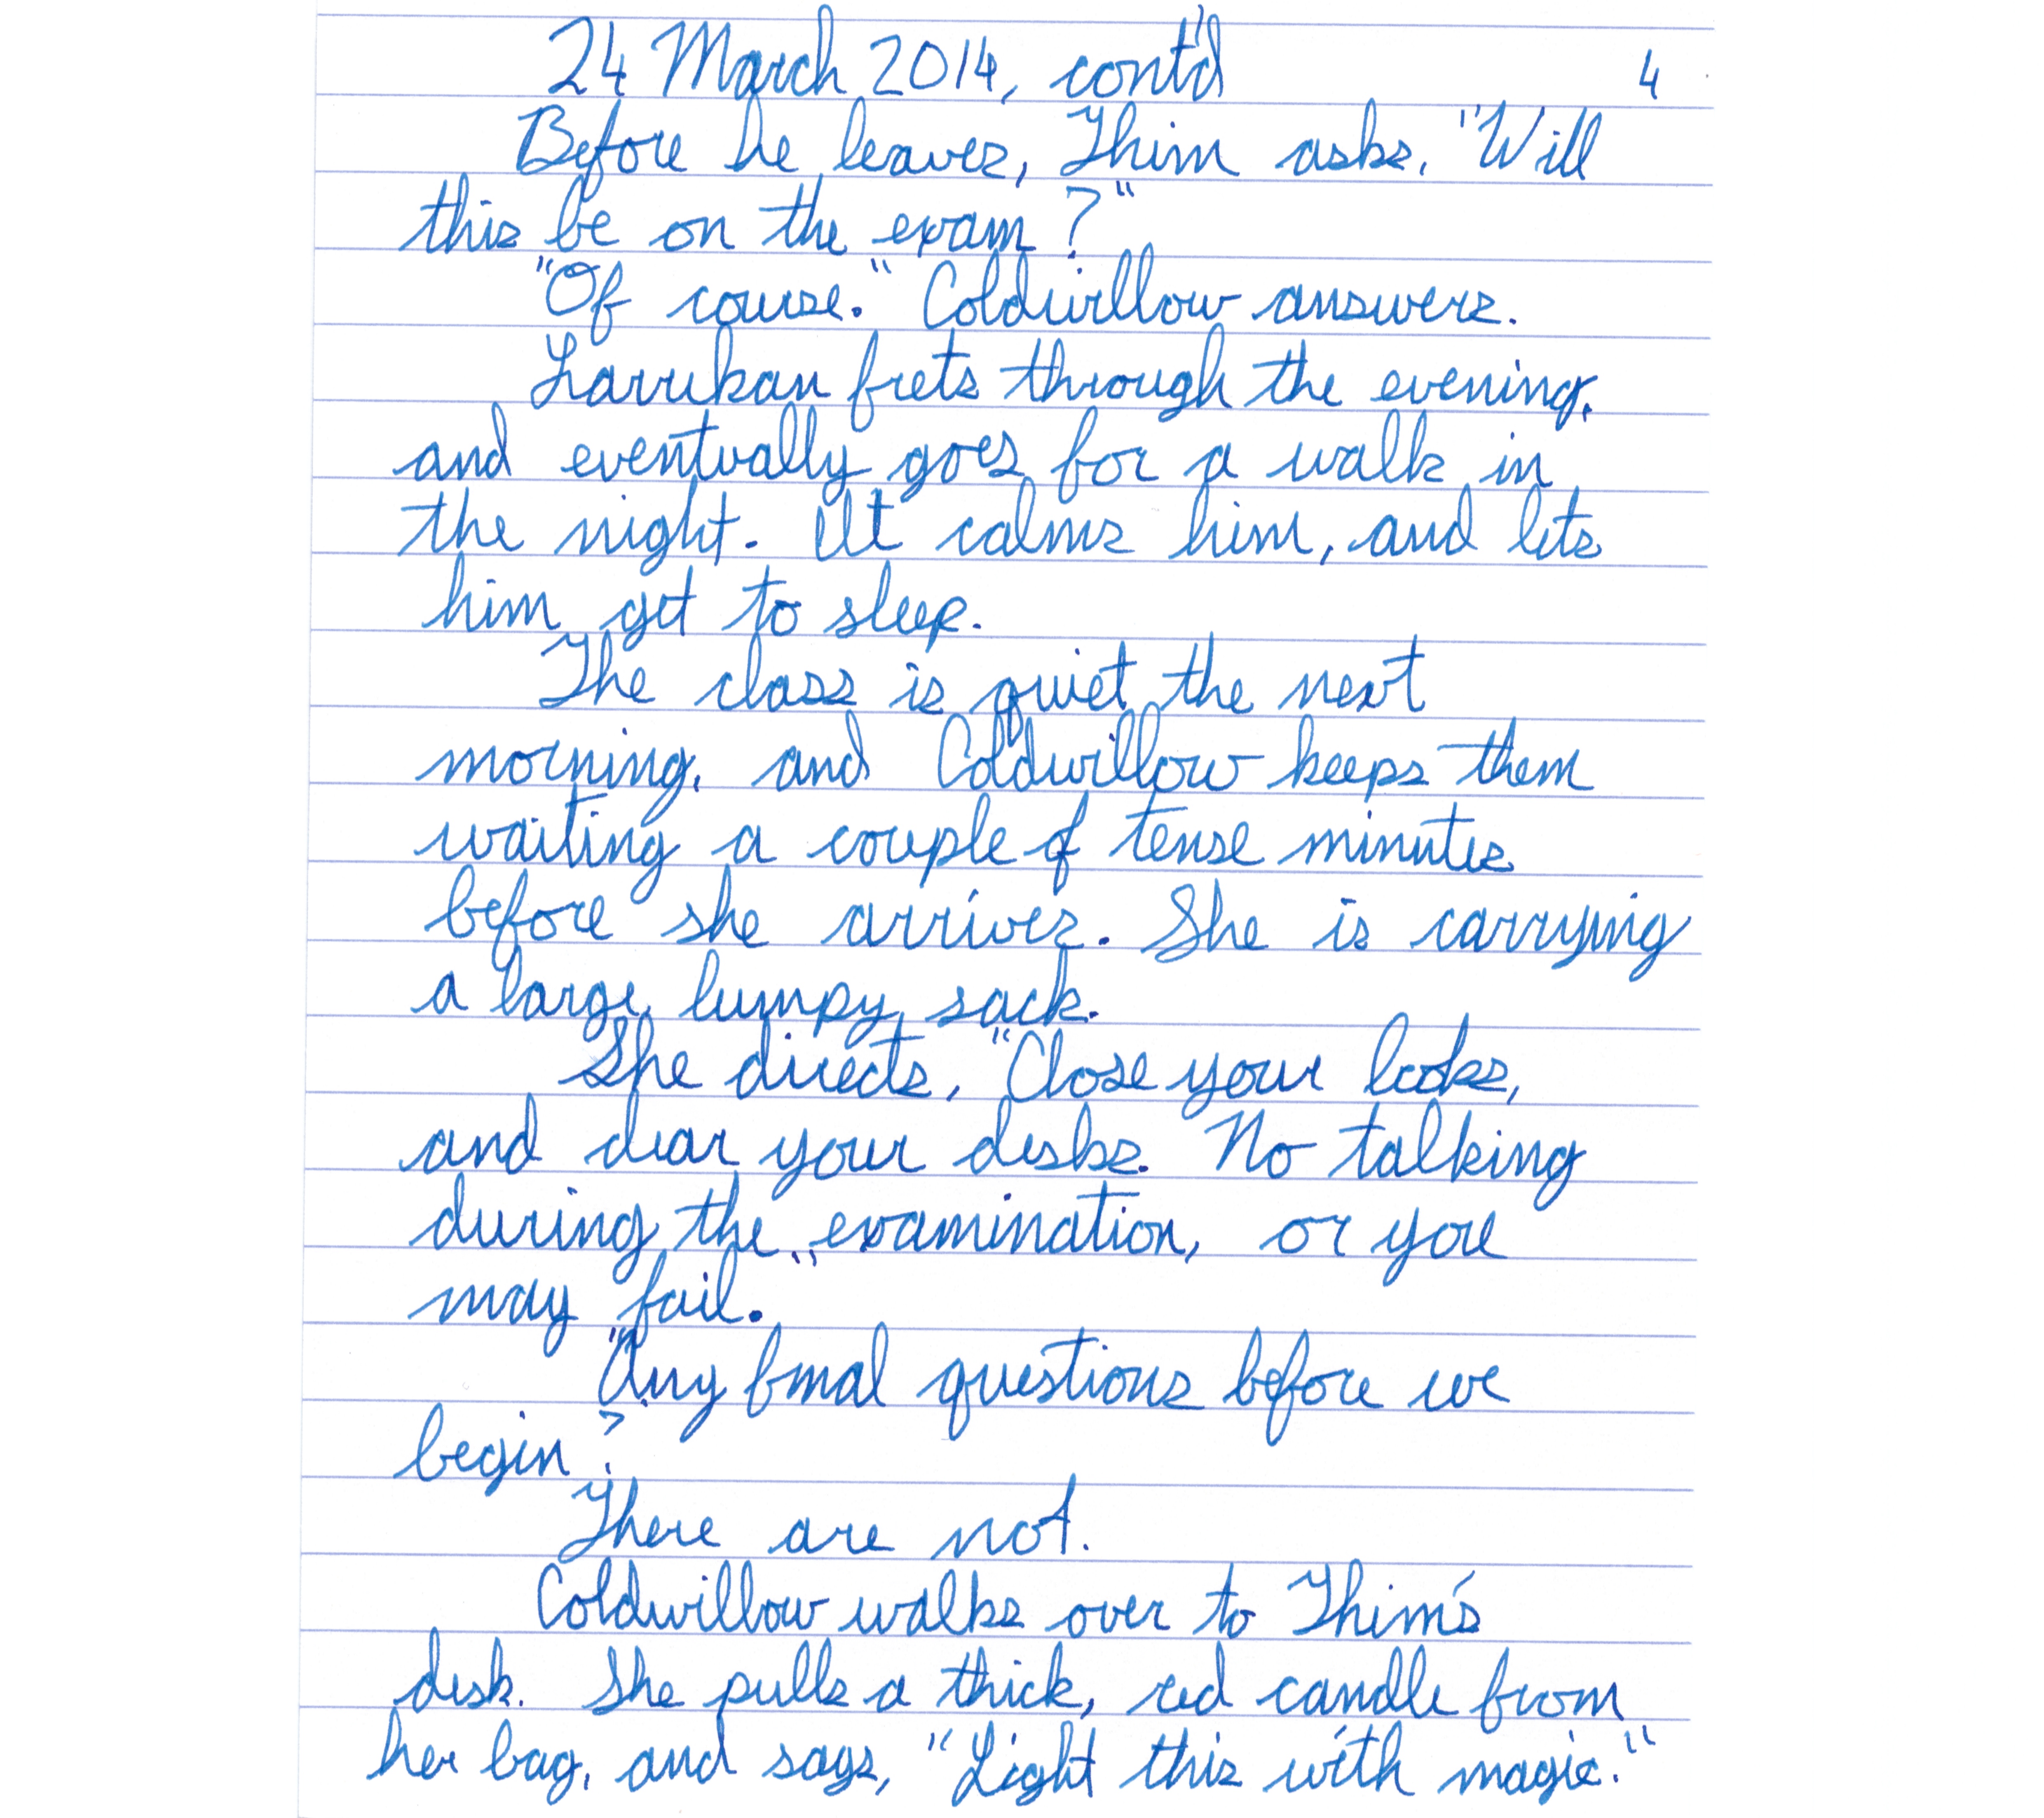 24 March 2014, cont'd 4
Before he leaves, Thim asks, "Will
this be on the exam?"
"Of course." Coldwillow answers.
Larrikan frets through the evening,
and eventually goes for a walk in
the night. It calms him, and lets
him get to sleep.
The class is quiet the next
morning, and Coldwillow keeps them
waiting a couple of tense minutes
before she arrives. She is carrying
a large, lumpy sack.
She directs, "Close your books,
and clear your desks. No talking
during the examination, or you
may fail."
"Any final questions before we
begin?
There are not.
Coldwillow walks over to Thim's
desk. She pulls a thick, red candle from
her bag, and says, "Light this with magic."